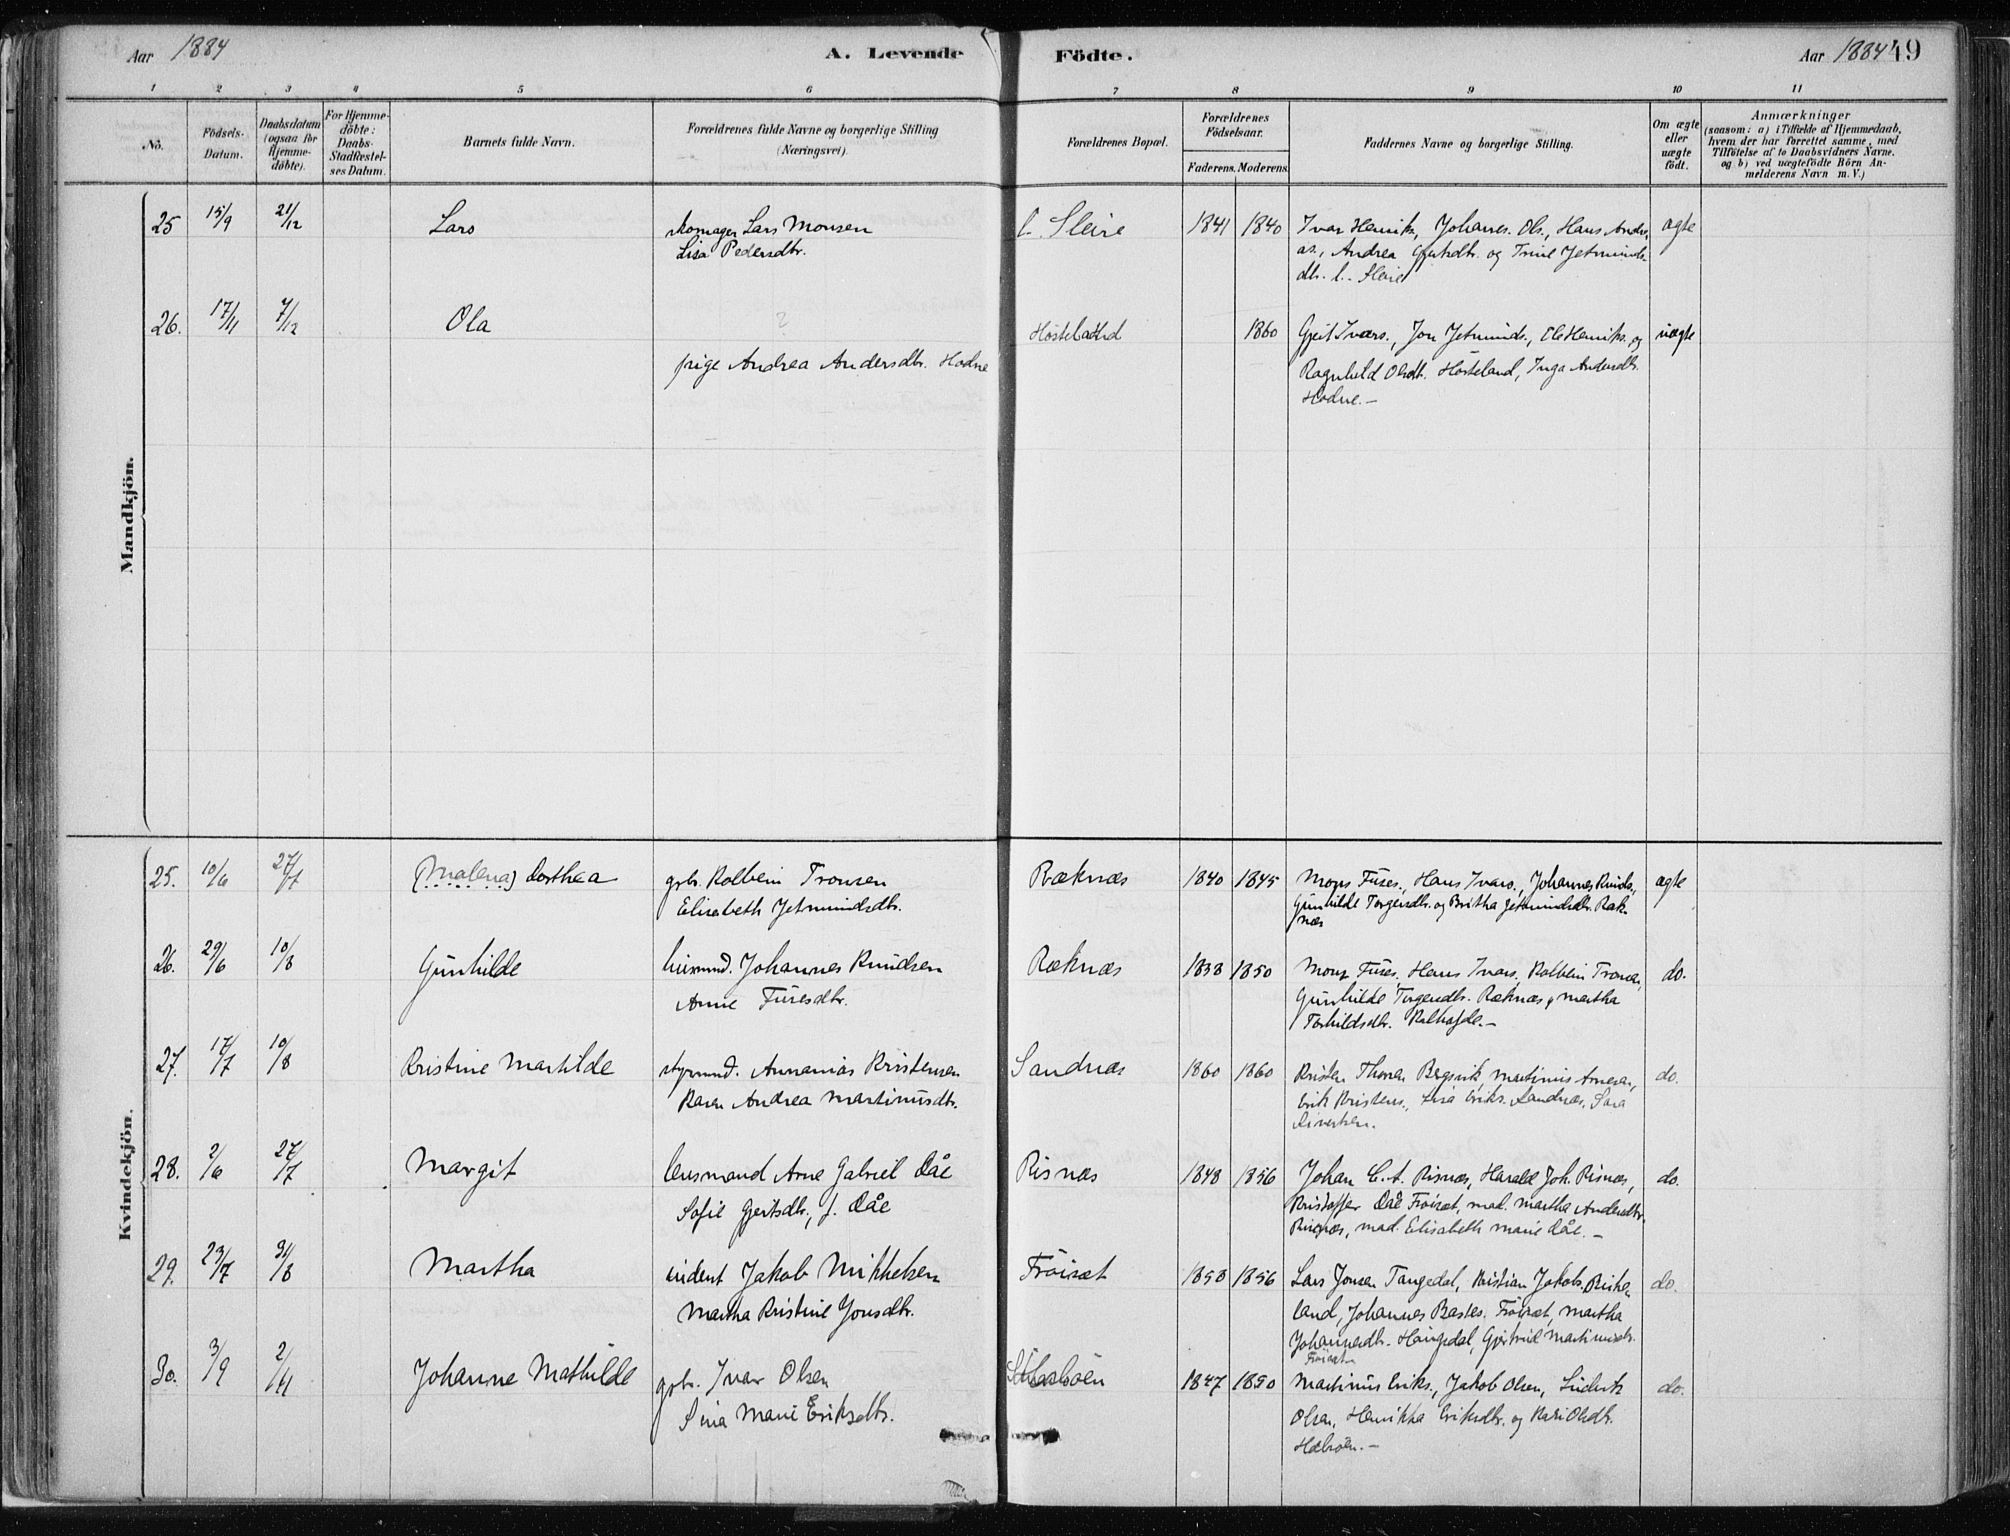 Aar 1884
A. Levende Födte.
Aar 1884
49
1 2 3 4 5 6 7 8 9 10 11
No.
Födsels-Datum.
Daabsdatum (ogsaa for Hjemme-döbte).
For Hjemme-döbte: Daabs-Stadfæstel-ses Datum.
Barnets fulde Navn.
Forældrenes fulde Navne og borgerlige Stilling (Næringsvei).
Forældrenes Bopæl.
Forældrenes Födselsaar.
Faderens. Moderens.
Faddernes Navne og borgerlige Stilling.
Om ægte eller uægte födt.
Anmærkninger
(saasom: a) i Tilfælde af Hjemmedaab, hvem der har forrettet samme, med Tilföielse af to Daabsvidners Navne, og b) ved uægtefödte Börn Anmelderens Navn m. V.)
Mandkjön.
25 15/9 21/12 Lars skomager Lars Monsen Sleire 1841 1840 Ivar Henrik, Johannes Ols., Hans Andre- ægte
Lisa Pedersdtr. as., Andrea Gjertsdtr. og Trine Jetmunds-
dtr. Sleire
26. 17/11 7/12 Ola ? Hosteland 1860 Gjert Ivars., Jon Jetmunds., Ole Henriks. og uægte
pige Andrea Andersdtr. Hodne Ragnhild Olsdtr. Hosteland, Inga Andersdtr.
Hodne.-
Kvindekjön.
25. 10/6 27/7 (Malena) Dorthea gbr. Kolbein Tronsen Ræknæs 1840 1845 Mons Fuses., Hans Ivars., Johannes Knuds., ægte
Elisabeth Jetmundsdtr. Gunhilde Torgersdtr. og Britha Jetmundsdtr. Ræk-
næs
26. 29/6 10/8 Gunhilde husmnd. Johannes Knudsen Ræknæs 1838 1850 Mons Fuses., Hans Ivars., Kolbein Trons., do.
Anne Fusesdtr. Gunhilde Torgersdtr. Ræknæs, Martha
Torhildsdtr.
27. 17/7 10/8 Kristine Mathilde styrmnd. Annanias Kristensen Sandnæs 1860 1860 Kristen Thoren Bergsvik, Martinus Arnesen, do.
Karen Andrea Martinusdtr. Erik Kristens., Lisa Eriks. Sandnæs, Sara
Sivertsen.
28. 2/6 27/7 Margit lensmand Arne Gabriel Dåe Risnæs 1848 1856 Johan C. A. Risnæs, Harald Joh. Risnæs, do.
Sofie Gjertsdtr., f. Dåe Kristoffer Dåe Fröiset, mad. Martha Andersdtr.
Risnæs, mad. Elisabeth Marie Dåe.-
29. 23/7 31/8 Martha inderst Jakob Mikkelsen Fröiset 1858 1856 Lars Jonsen Tangedal, Kristian Jakobs. Birke- do.
Martha Kristine Jonsdtr. land, Johannes Fröiset, Martha
Johannesdtr. Haugsdal, Gjertrud Martinusdtr.
Fröiset
30. 3/9 2/11 Johanne Mathilde gbr. Ivar Olsen 1847 1850 Martinus Eriks., Jakob Olsen, Sivert do.
Sina Marie Eriksdtr. Olsen, Henrikka Eriksdtr. og Kari Olsdtr.